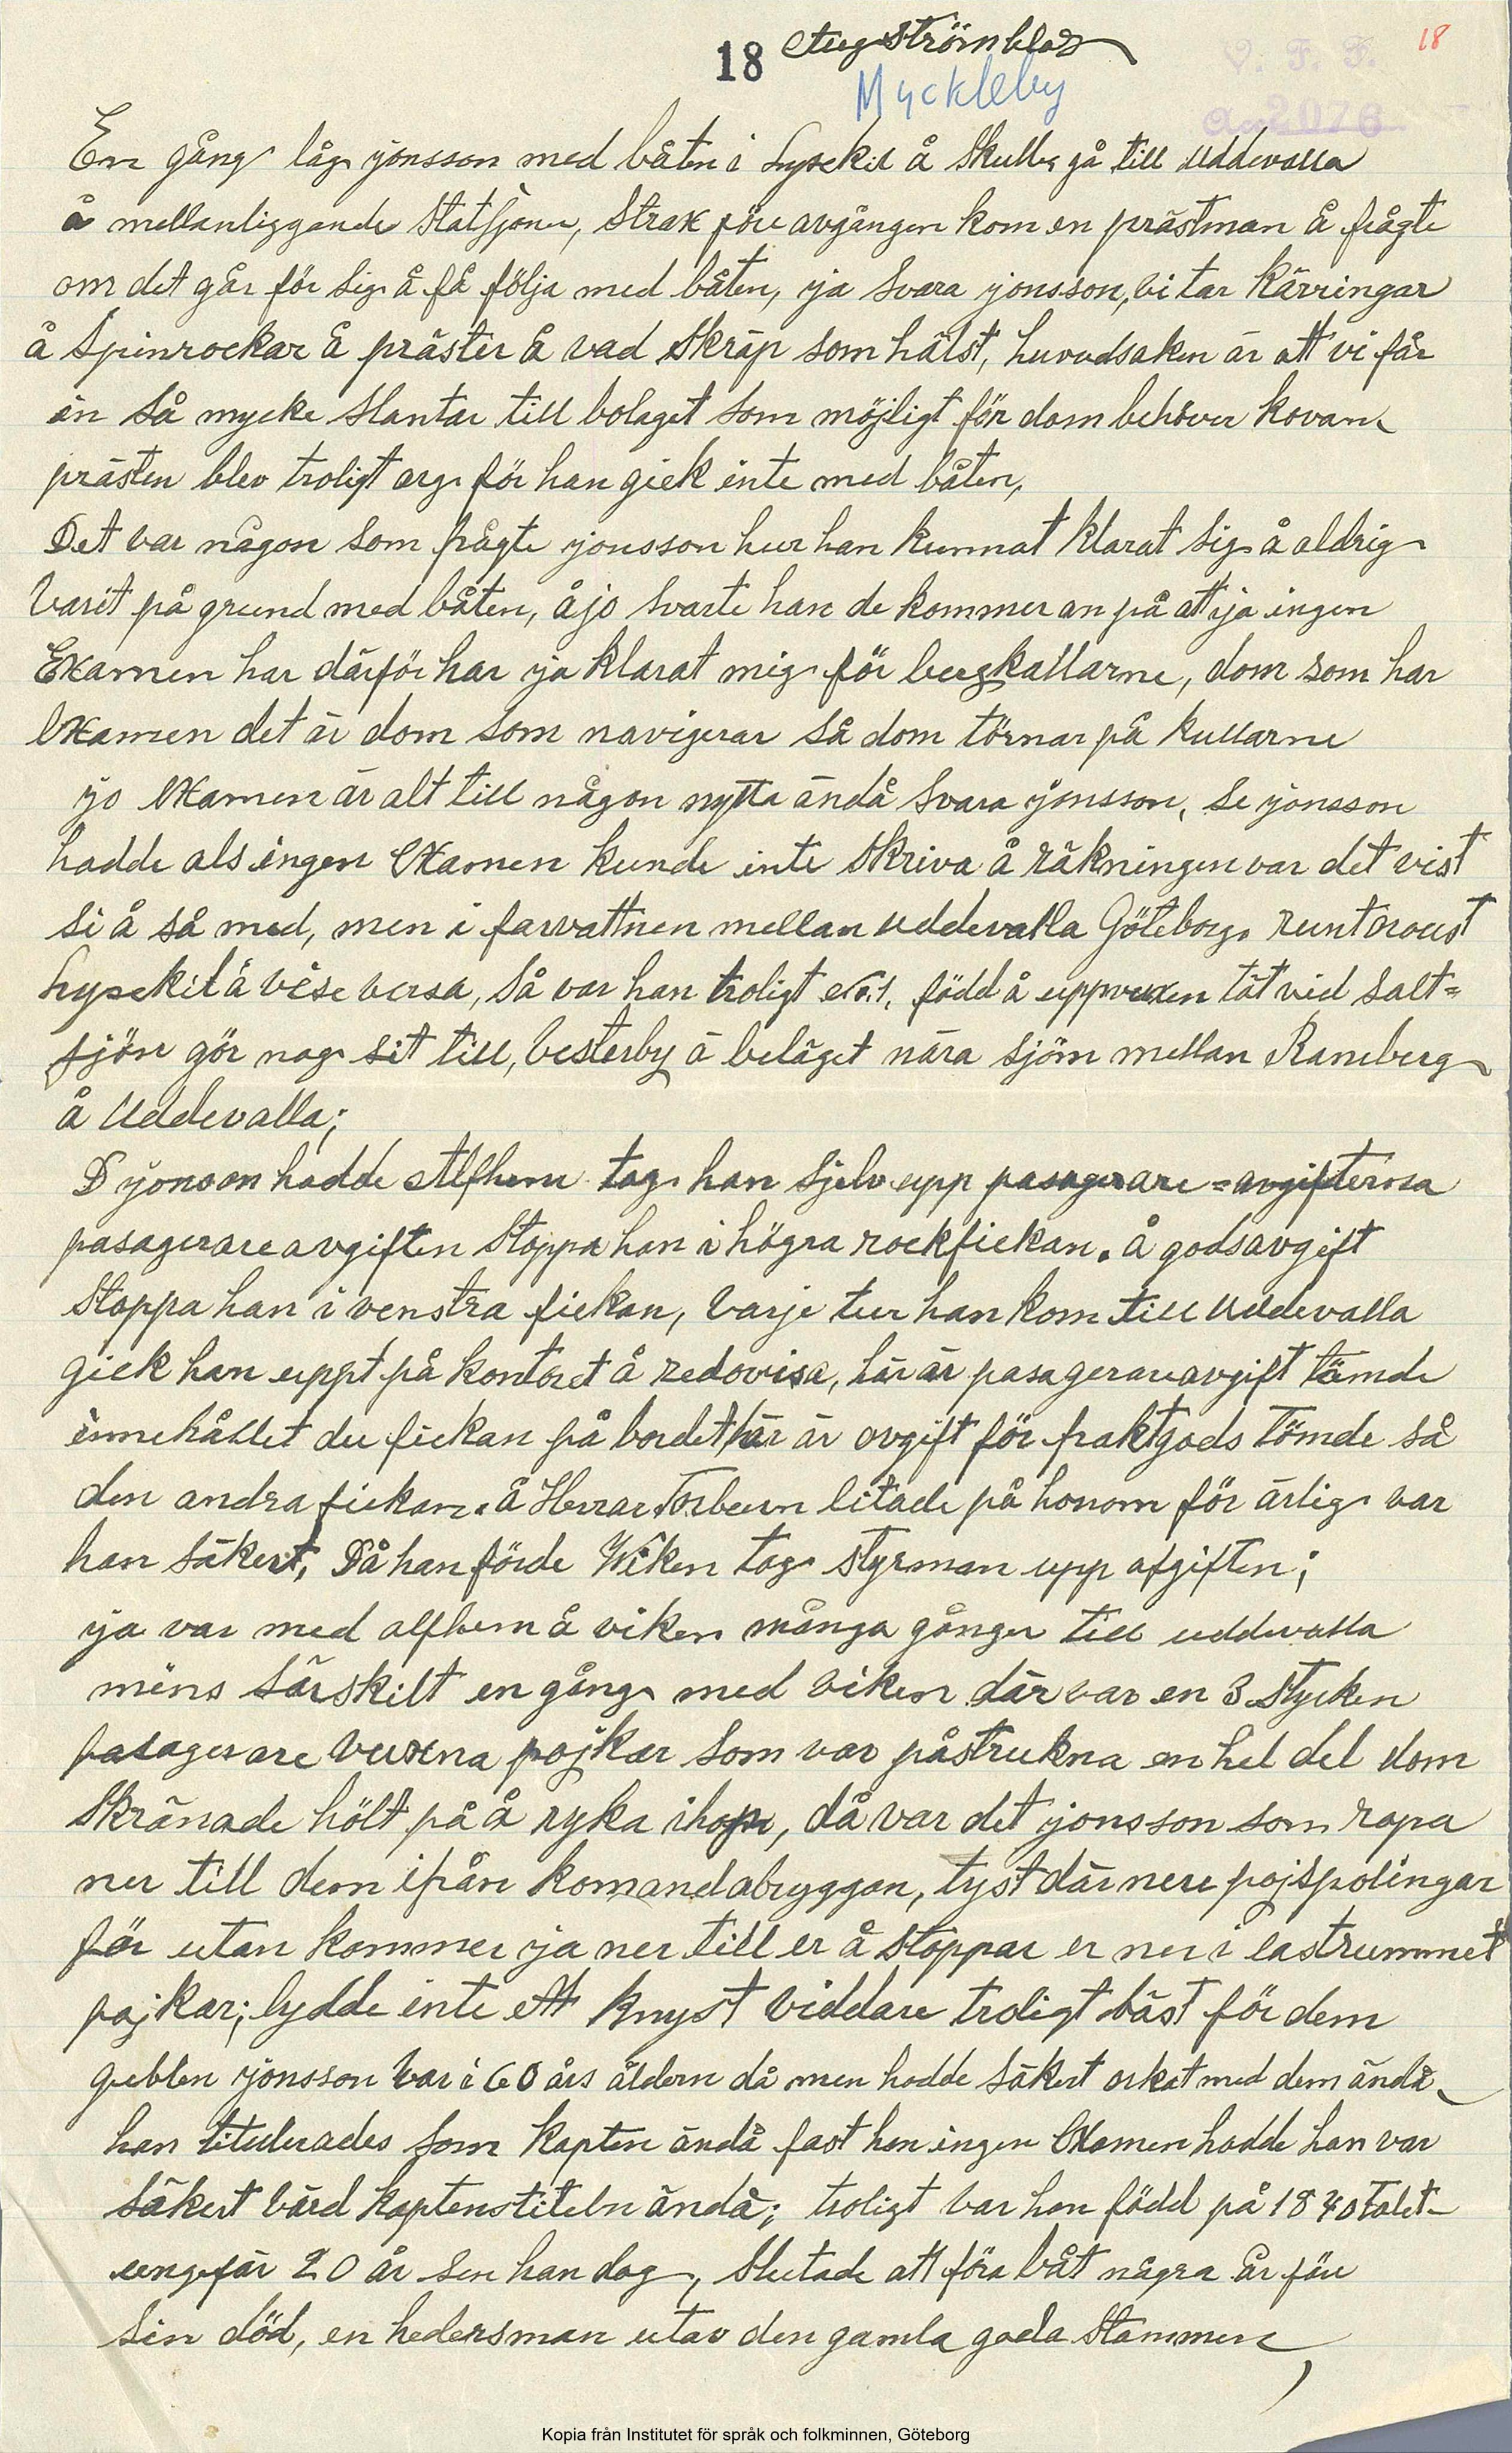 18
Aug Strömblad
18
Myckleby
V. F. F.
Acc 2076
En gång låg jonsson med båten i Lysekil å skulle gå till Uddevalla
å mellanliggande statsjoner, strax före avgången kom en prästman å frågte
om det går för sig å få följa med båten, ja svara jonsson, vi tar kärringar
å spinrockar å präster å vad skräp som hälst, huvudsaken är att vi får
in så mycke slantar till bolaget som möjligt för dom behöver kovan
prästen blev troligt arg för han gick inte med båten,
Det var någon som frågte jonsson hur han kunnat klarat sig å aldrig
varit på grund med båten, åjo svarte han de kommer an på att ja ingen
Examen har därför har ja klarat mig för bergkallarne, dom som har
Examen det är dom som navigerar så dom törnar på kullarne
jo Examen är alt till någon nytta ändå svara jonsson, se jonsson
hadde als ingen Examen kunde inte skriva å räkningen var det vist
si å så med, men i farvattnen mellan Uddevalla Göteborg runt oroust
Lysekil å vise versa, så var han troligt No.1, född å uppvuxen tät vid salt=
sjön gör nog sit till, Vesterby ä beläget nära sjön mellan Raneberg
å Uddevalla;
D jonson hadde Alfhem tog han sjelv upp pasagerare=avgifterna
pasagerareavgiften stoppa han i högra rockfickan. å godsavgift
stoppa han i venstra fickan, varje tur han kom till Uddevalla
gick han uppt på kontoret å redovisa, här är pasagerareavgift tömde
innehållet du fickan på bordet här är avgift för fraktgods tömde så
den andra fickan. å Herrar Torbeurn litade på honom för ärlig var
han säkert, Då han förde Wiken tog styrman upp afgiften;
ja var med alfhem å viken många gånger till uddevalla
mins särskilt en gång med viken där var en 3 stycken
pasagerare vuxna pojkar som var påstrukna en hel del dom
skränade hölt på å ryka ihop, då var det jonsson som ropa
ner till dem ifrån komandobryggan, tyst där nere pojspolingar
för utan kommer ja ner till er å stoppar er ner i lastrummet
pojkar; lydde inte ett knyst viddare troligt bäst för dem
gubben jonsson var i 60 års åldern då men hadde säkert orkat med dem ändå
han titulerades som kapten ändå fast han ingen Examen hadde han var
säkert värd kaptenstiteln ändå; troligt var han född på 1840talet
ungefär 20 år sen han dog, slutade att föra båt några år före
sin död, en hedersman utav den gamla goda stammen
Kopia från Institutet för språk och folkminnen, Göteborg